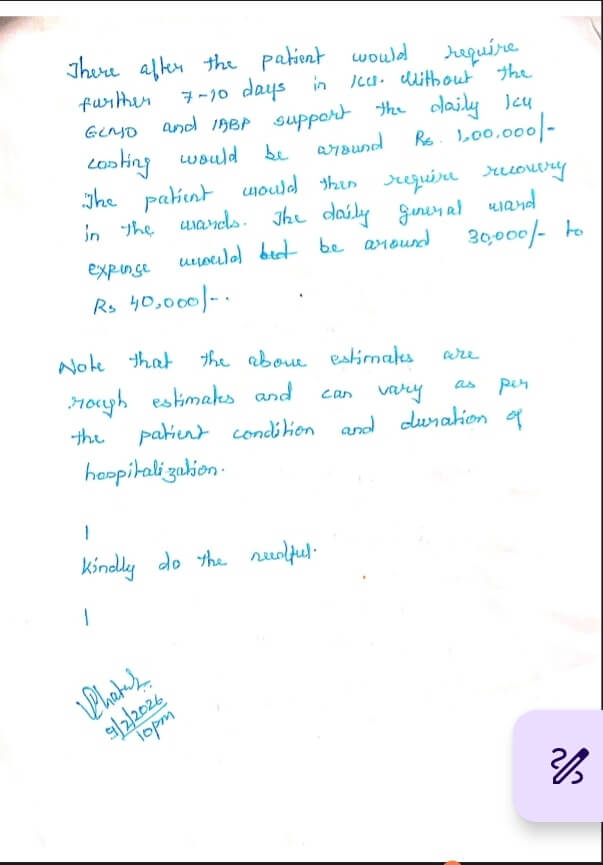 There after the patient would require
further 7-10 days in ICU. Without the
ECMO and IABP support the daily ICU
costing would be around Rs. 1,00,000/-
The patient would then require recovery
in the wards. The daily general ward
expense would be around 30,000/- to
Rs 40,000/-.
Note that the above estimates are
rough estimates and can vary as per
the patient condition and duration of
hospitalization.
Kindly do the needful.
9/2/2026
10pm